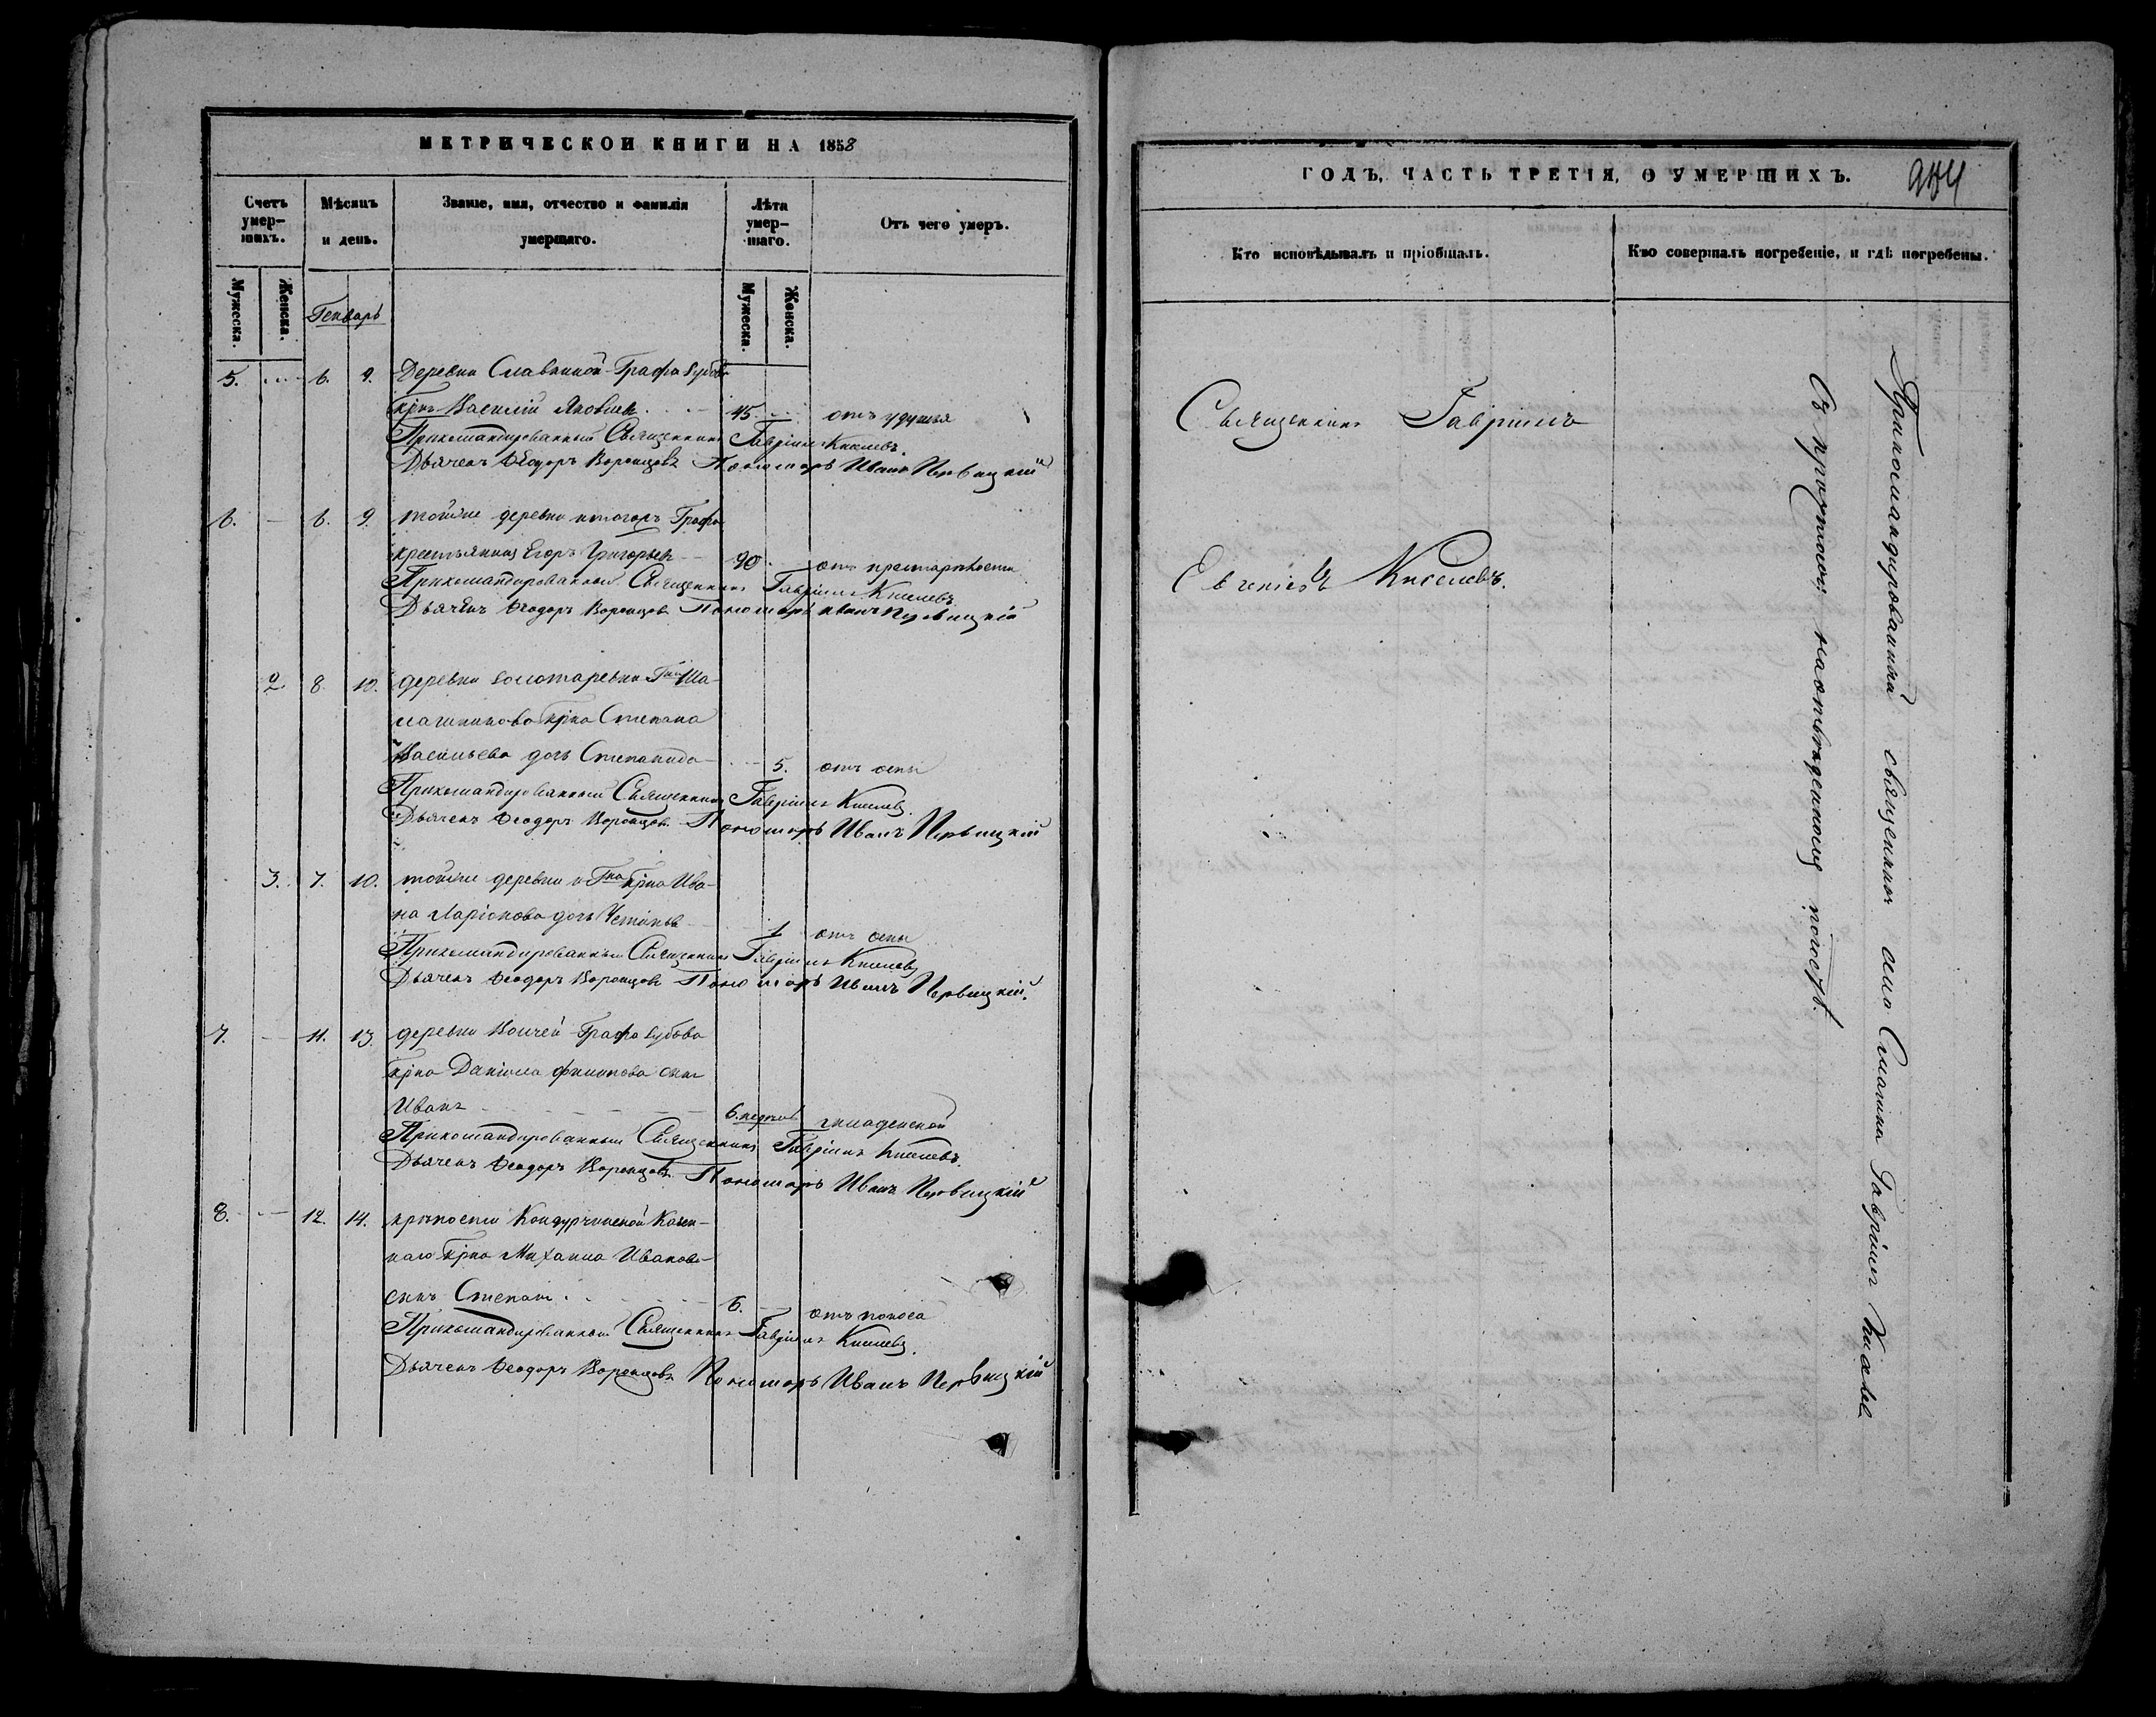 МЕТРИЧЕСКОЙ КНИГИ НА 1858
Счетъ умер-шихъ.
Мѣсяцъ и день.
Званіе, имя, отчество и фамилія умершаго.
Лѣта умер-шаго.
Отъ чего умеръ.
Мужеска.
Женска.
Генварь
Мужеска.
Женска.
5. 6. 9. Деревни Славкиной Графа Зубова
крнъ Василій Яковлевъ 45. отъ удушья
Прикомандированный Священникъ Гавріилъ Киселевъ.
Дьячекъ Ѳеодоръ Воронцовъ Пономарь Иванъ Первицкій
6. 6. 9. тойже деревни и тогожъ Графа
крестьянинъ Егоръ Григорьевъ 90. отъ престарѣлости
Прикомандированный Священникъ Гавріилъ Киселевъ
Дьячекъ Ѳеодоръ Воронцовъ Пономарь Иванъ Первицкій
2. 8. 10. деревни Золотаревки Гна Ша-
лашникова крна Степана
Васильева дочь Степанида 5. отъ оспы
Прикомандированный Священникъ Гавріилъ Киселевъ.
Дьячекъ Ѳеодоръ Воронцовъ Пономарь Иванъ Первицкій
3. 7. 10. тойже деревни и Гна крна Ива-
на Ларіонова дочь 1 отъ оспы
Прикомандированный Священникъ Гавріилъ Киселевъ
Дьячекъ Ѳеодоръ Воронцовъ Пономарь Иванъ Первицкій.
7. 11. 13. деревни Волчей Графа Зубова
крна Даніила Филипова сынъ
Иванъ 6. недель младенской
Прикомандированный Священникъ Гавріилъ Киселевъ.
Дьячекъ Ѳеодоръ Воронцовъ Пономарь Иванъ Первицкій
8. 12. 14. крѣпости Кондурчинской Казен-
наго крна Михаила Иванова
сынъ Степанъ 6. отъ поноса
Прикомандированный Священникъ Гавріилъ Киселевъ.
Дьячекъ Ѳеодоръ Воронцовъ Пономарь Иванъ Первицкій
ГОДЪ, ЧАСТЬ ТРЕТІЯ, О УМЕРШИХЪ.
Кто исповѣдывалъ и пріобщалъ.
Кто совершалъ погребеніе, и гдѣ погребены.
Священникъ Гавріилъ
Евгеніевъ Киселевъ.
Прикомандированный священникъ села Смагина Гавріилъ Киселев
Съ причтомъ на отведенномъ погостѣ.